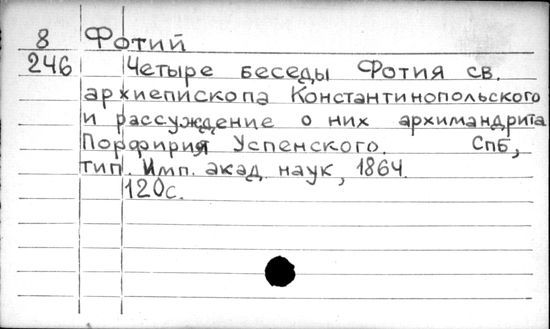 8 Фотий
246 Четыре беседы Фотия св.
архиепископа Константинопольского
и рассуждение о них архимандрита
Порфирия Успенского. Спб,
тип. Имп. акад. наук, 1864.
120с.